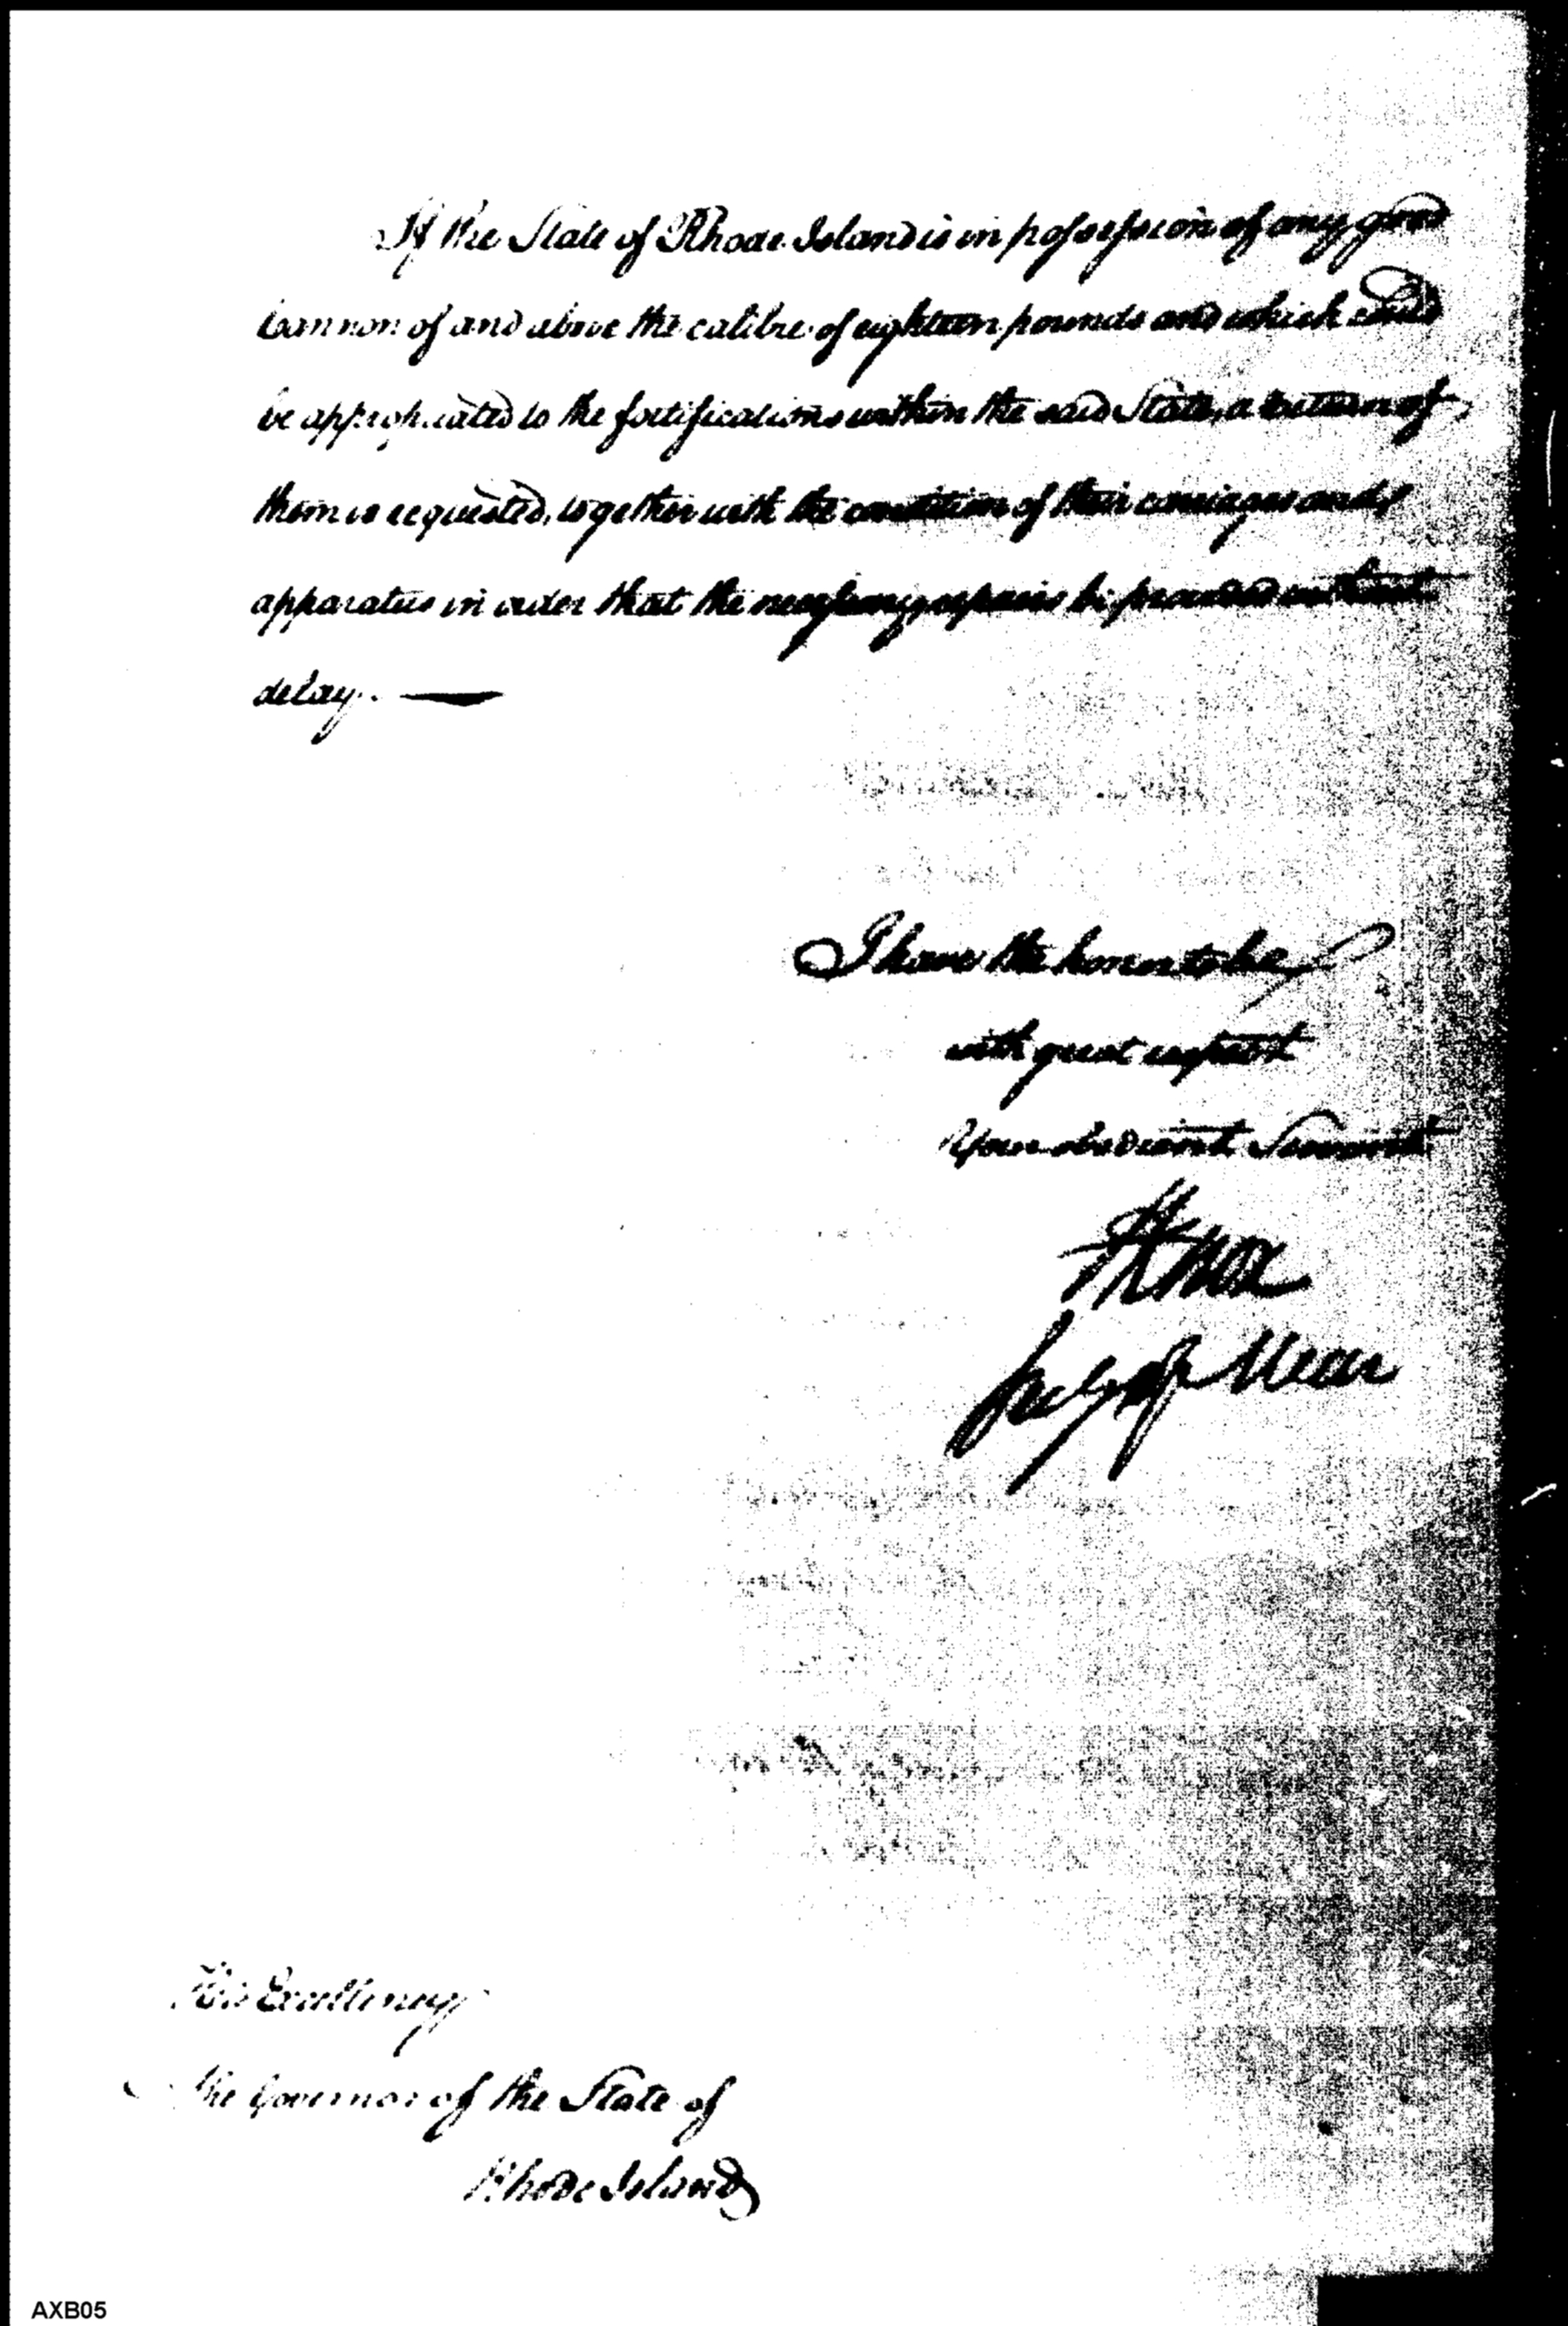 If the State of Rhode Island is in possession of any good
Cannon of and above the calibre of eighteen pounds and which could
be appropriated to the fortifications within the said State, a return of
them is requested, together with the condition of their carriages and
apparatus in order that the necessary repairs be provided without
delay. —
I have the honor to be
with great respect
Your obedient Servant
HKnox
Secy of War
His Excellency
The Governor of the State of
Rhode Island
AXB05